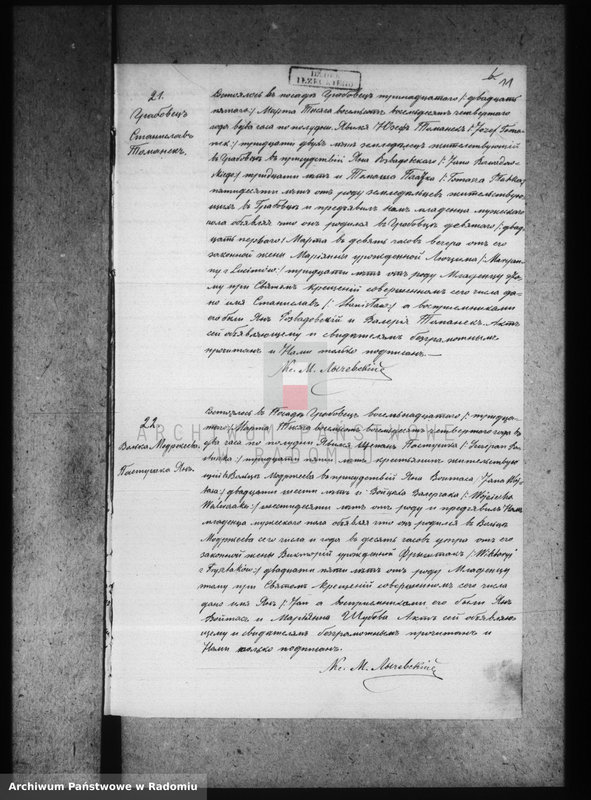 21.
Грабовецъ
Станиславъ
Томанекъ.
Состоялось въ посадѣ Грабовецъ тринадцатаго /: двадцать
пятаго:/ Марта Тысяча восемьсотъ восемьдесятъ четвертаго
года въ два часа по полудни. Явился Юсефъ Томанекъ /: Józef Toma-
nek:/ тридцати двухъ лѣтъ земледѣлецъ жительствующій
въ Грабовцѣ въ присутствіи Яна Розвадовскаго /: Jana
тридцати лѣтъ и Томаша /: Tomasza
пятидесяти лѣтъ отъ роду земледѣльцевъ жительствую-
щихъ въ Грабовцѣ и предъявилъ намъ младенца мужескаго
пола объявляя что онъ родился въ Грабовцѣ девятаго /: двад-
цать перваго:/ Марта въ девять часовъ вечера отъ его
законной жены Маріянны урожденной /: Maryan-
ny z :/ тридцати лѣтъ отъ роду. Младенцу это-
му при Святомъ крещеніи совершенномъ сего числа да-
но имя Станиславъ /: Stanisław:/ а воспріемниками
его были Янъ Розвадовскій и Валерія Томанекъ. Актъ
сей объявляющему и свидѣтелямъ безграмотнымъ
прочитанъ и Нами только подписанъ.—
Кс. М. Лычевскій
22.
Волька Модржеева.
Пастушка Янъ.
Состоялось въ Посадѣ Грабовецъ восемьнадцатаго /: тридца-
таго:/ Марта Тысяча восемьсотъ восемьдесятъ четвертаго года въ
два часа по полудни. Явился Щепанъ Пастушка /: Szczepan Pas-
tuszka:/ тридцати пяти лѣтъ крестьянинъ жительствую-
щій въ Волькѣ Модржеева въ присутствіи Яна Войтаса /: Jana Woj-
tasa:/ двадцати шести лѣтъ и Войцѣха /: Wojciecha
:/ шестидесяти лѣтъ отъ роду и предъявилъ Намъ
младенца мужескаго пола объявляя что онъ родился въ Волькѣ
Модржеева сего числа и года въ десять часовъ утра отъ его
законной жены Викторіи урожденной /: Wiktoryi
z :/ двадцати пяти лѣтъ отъ роду. Младенцу
этому при Святомъ Крещеніи совершенномъ сего числа
дано имя Янъ /: Jan а воспріемниками его были Янъ
Войтасъ и Маріянна Шубова. Актъ сей объявляю-
щему и свидѣтелямъ безграмотнымъ прочитанъ и
Нами только подписанъ.
Кс. М. Лычевскій
ARCHIWUM PAŃSTWOWE
W RADOMIU
Archiwum Państwowe w Radomiu